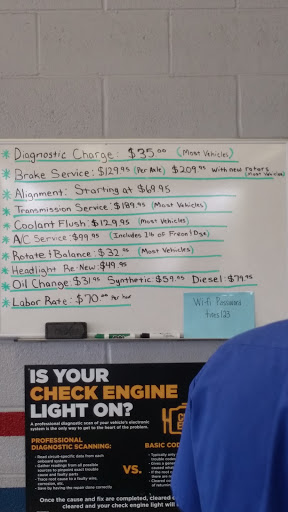 * Diagnostic Charge: $35.00 (Most Vehicles)
* Brake Service: $129.95 (Per Axle) $209.95 with new rotors (most Vehicles)
* Alignment: Starting at $69.95
* Transmission Service: $189.95 (Most Vehicles)
* Coolant Flush: $129.95 (most Vehicles)
* A/C Service: $99.95 (Includes 1 lb of Freon & Dye)
* Rotate & Balance: $32.95 (Most Vehicles)
* Headlight Re-New: $49.95
* Oil Change: $31.95 Synthetic: $59.95 Diesel: $79.95
* Labor Rate: $70.00 Per hour
Wi-fi Password
tires123
IS YOUR
CHECK ENGINE
LIGHT ON?
A professional diagnostic scan of your vehicle's electronic
system is the only way to get to the heart of the problem.
PROFESSIONAL
DIAGNOSTIC SCANNING:
- Read circuit-specific data from each
onboard system
- Gather readings from all possible
sources to pinpoint exact trouble
cause and faulty parts
- Trace root cause to a faulty wire,
corrosion, etc.
- Save by having the repair done correctly
VS.
BASIC
- Typically only
trouble
- Gives a
Once the cause and fix are completed, cleared
cleared and your check engine light will